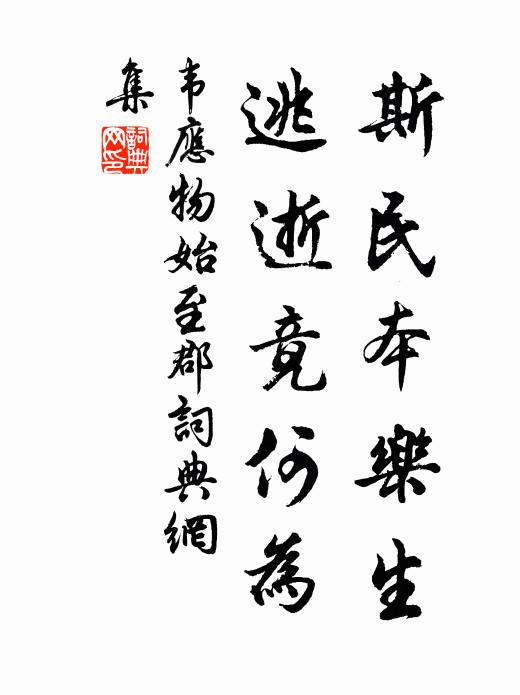 斯民本樂生
逃逝竟何為
韦應物始至郡詞典網
集
詞典
网印